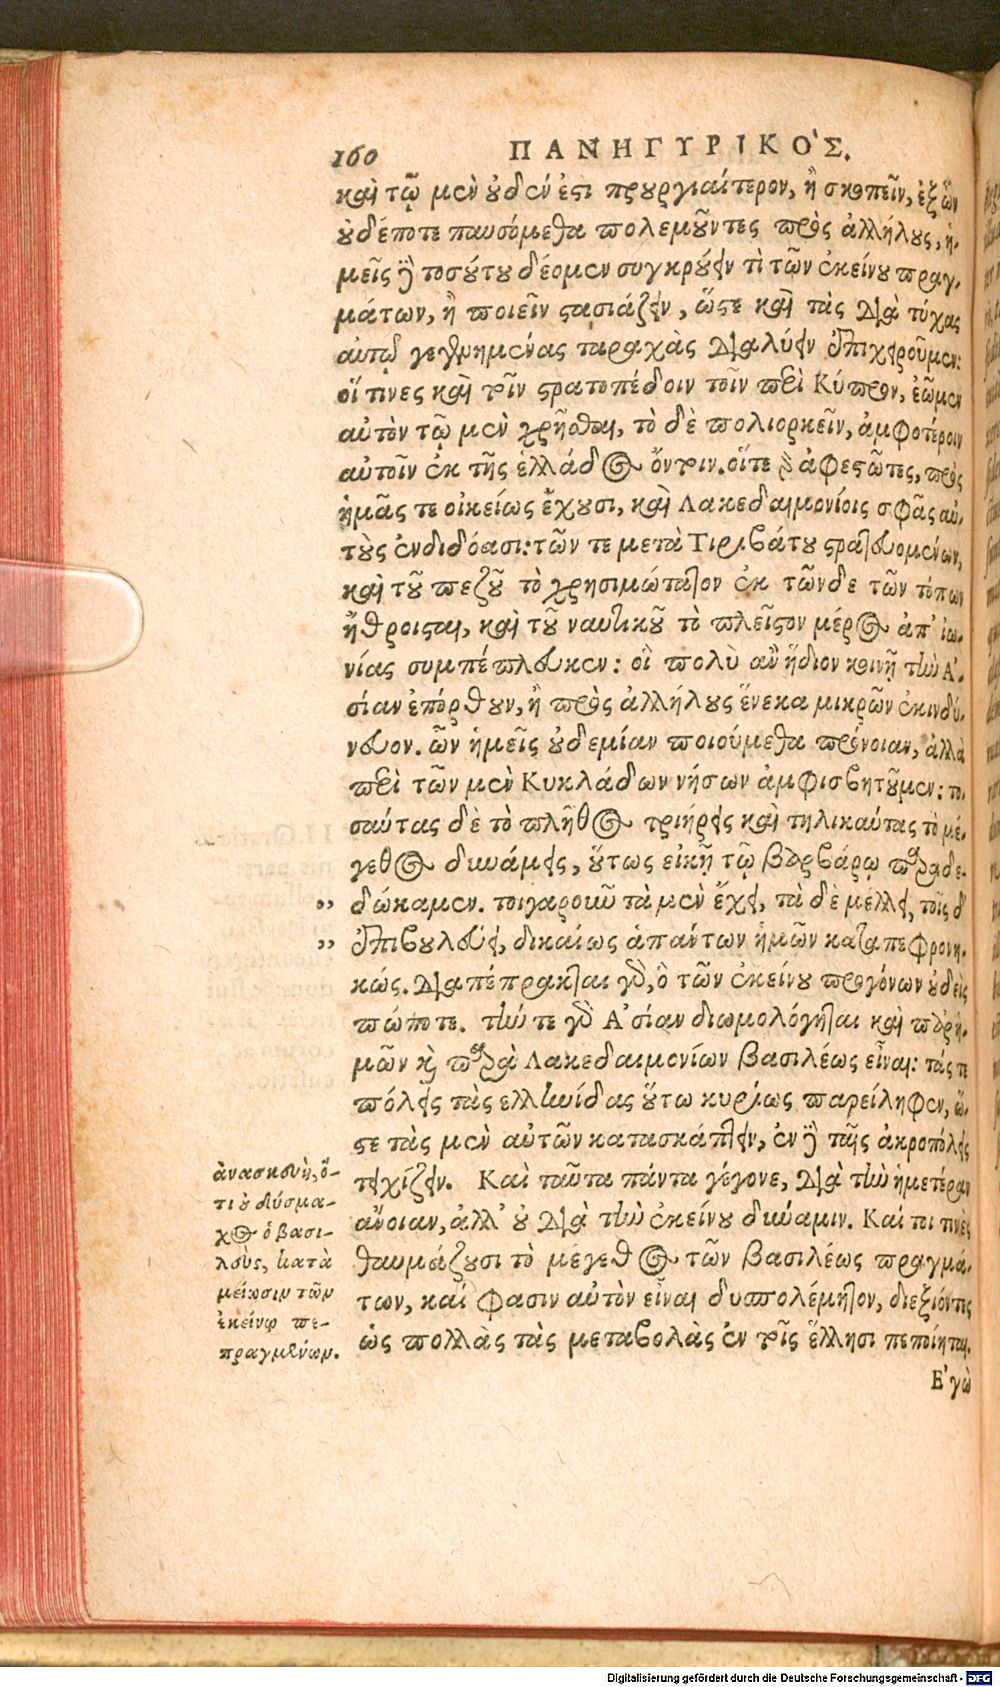 160 ΠΑΝΗΓΥΡΙΚΟ'Σ.
καὶ τῷ μὲν οὐδέν ἐστι προὐργιαίτερον, ἢ σκοπεῖν, ἐξ ὧν
οὐδέποτε παυσόμεθα πολεμοῦντες πρὸς ἀλλήλους, ἡ-
μεῖς δὲ τοσούτου δέομεν συγκρούειν τὶ τῶν ἐκείνου πραγ-
μάτων, ἢ ποιεῖν στασιάζειν, ὥστε καὶ τὰς διὰ τύχας
αὐτῷ γεγενημένας ταραχὰς διαλύειν ἐπιχειροῦμεν:
οἵ τινες καὶ τοῖν στρατοπέδοιν τοῖν περὶ Κύπρον, ἐῶμεν
αὐτὸν τῷ μὲν χρῆσθαι, τὸ δὲ πολιορκεῖν, ἀμφοτέροιν
αὐτοῖν ἐκ τῆς ἑλλάδος ὄντοιν. οἵτε γὰρ ἀφεστῶτες, πρὸς
ἡμᾶς τε οἰκείως ἔχουσι, καὶ Λακεδαιμονίοις σφᾶς αὐ-
τοὺς ἐνδιδόασι: τῶν τε μετὰ Τιριβάτου στρατευομένων,
καὶ τοῦ πεζοῦ τὸ χρησιμώτατον ἐκ τῶνδε τῶν τόπων
ἤθροισται, καὶ τοῦ ναυτικοῦ τὸ πλεῖστον μέρος ἀπ' ἰω-
νίας συμπέπλευκεν: οἳ πολὺ ἂν ἥδιον κοινῇ τὴν Α'-
σίαν ἐπόρθουν, ἢ πρὸς ἀλλήλους ἕνεκα μικρῶν ἐκινδύ-
νευον. ὧν ἡμεῖς οὐδεμίαν ποιούμεθα πρόνοιαν, ἀλλὰ
περὶ τῶν μὲν Κυκλάδων νήσων ἀμφισβητοῦμεν: το-
σαύτας δὲ τὸ πλῆθος τριήρεις καὶ τηλικαύτας τὸ μέ-
γεθος δυνάμεις, οὕτως εἰκῇ τῷ βαρβάρῳ παραδε-
„ δώκαμεν. τοιγαροῦν τὰ μὲν ἔχει, τὰ δὲ μέλλει, τοῖς δ'
„ ἐπιβουλεύει, δικαίως ἁπάντων ἡμῶν καταπεφρονη-
κώς. διαπέπρακται γὰρ, ὃ τῶν ἐκείνου προγόνων οὐδεὶς
πώποτε. τήν τε γὰρ Α'σίαν διωμολόγηται καὶ παρ' ἡ-
μῶν καὶ παρὰ Λακεδαιμονίων βασιλέως εἶναι: τάς τε
πόλεις τὰς ἑλληνίδας οὕτω κυρίως παρείληφεν, ὥ-
στε τὰς μὲν αὐτῶν κατασκάπτειν, ἐν δὲ ταῖς ἀκροπόλεις
τειχίζειν. Καὶ ταῦτα πάντα γέγονε, διὰ τὴν ἡμετέραν
ἄνοιαν, ἀλλ' οὐ διὰ τὴν ἐκείνου δύναμιν. Καί τοι τινὲς
θαυμάζουσι τὸ μέγεθος τῶν βασιλέως πραγμά-
των, καί φασιν αὐτὸν εἶναι δυσπολέμητον, διεξιόντες
ὡς πολλὰς τὰς μεταβολὰς ἐν τοῖς ἕλλησι πεποίηται.
Ε'γὼ
ἀνασκευὴ, ὅ-
τι οὐ δύσμα-
χος ὁ βασι-
λεὺς, κατὰ
μείωσιν τῶν
ἐκείνῳ πε-
πραγμένων.
Digitalisierung gefördert durch die Deutsche Forschungsgemeinschaft - DFG